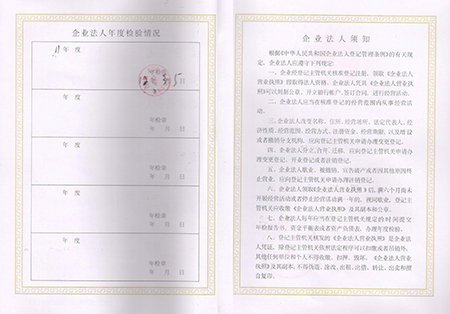 企业法人年度检验情况
11 年 度
年检章
5
年 度
年检章
年 月 日
年 度
年检章
年 月 日
年 度
年检章
年 月 日
年 度
年检章
年 月 日
企 业 法 人 须 知
根据《中华人民共和国企业法人登记管理条例》的有关规
定，企业法人应遵守下列规定:
一、企业经登记主管机关核准登记注册，领取《企业法人
营业执照》即取得法人资格。企业法人凭具《企业法人营业执
照》可以刻制公章、开立银行帐户、签订合同、进行经营活动。
二、企业法人应当在核准登记的经营范围内从事经营活
动。
三、企业法人改变名称、住所、经营场所、法定代表人、经
济性质、经营范围、经营方式、注册资金、经营期限，以及增设
或者撤销分支机构，应向登记主管机关申请办理变更登记。
四、企业法人分立、合并、迁移，应向登记主管机关申请办
理变更登记、开业登记或者注销登记。
五、企业法人歇业、被撤销、宣告破产或者因其他原因终
止营业，应向登记主管机关申请办理注销登记。
六、企业法人领取《企业法人营业执照》后，满六个月尚未
开展经营活动或者停止经营活动满一年的，视同歇业，登记主
管机关应收缴《企业法人营业执照》及其副本和公章。
七、企业法人每年应当在登记主管机关规定的时间提交
年检报告书、资金平衡表或者资产负债表，办理年度检验。
八、登记主管机关核发的《企业法人营业执照》是企业法
人凭证，除登记主管机关依照法定程序可以扣缴或者吊销外，
其他任何单位和个人不得收缴、扣押、毁坏。《企业法人营业执
照》及其副本，不得伪造、涂改、出租、出借、转让、出卖和擅
自复印。